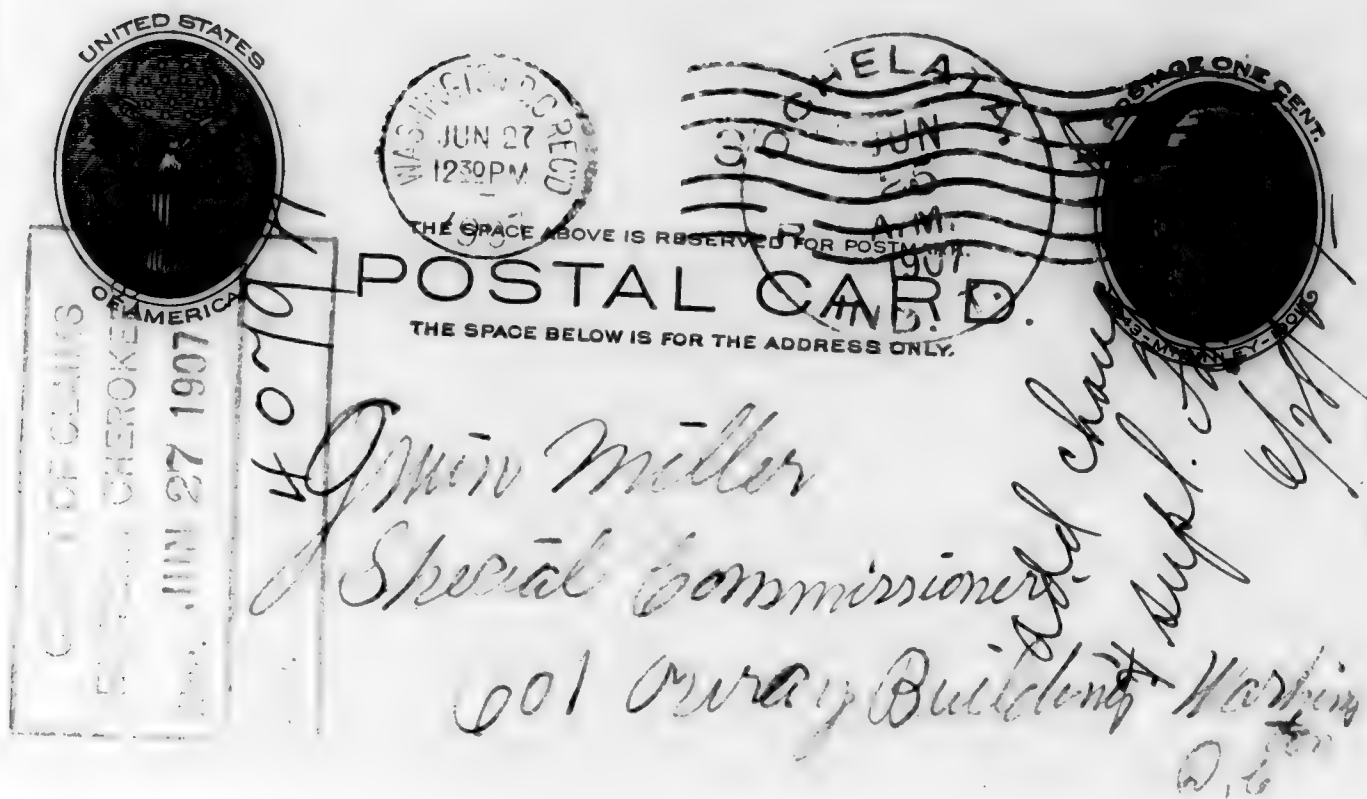 UNITED STATES
OF AMERICA
WASHINGTON, D.C. REC'D
JUN 27
1230 PM
1907
OCHELATA.
JUN
25
A.M.
1907
IND. T.
POSTAGE ONE CENT.
THE SPACE ABOVE IS RESERVED FOR POSTMARK.
POSTAL CARD.
THE SPACE BELOW IS FOR THE ADDRESS ONLY.
OF CLAIMS
CHEROKEE
JUN 27 1907
Miller
Special Commissioner
601 Ouray Building Washington
D.C
add chang
& supl.